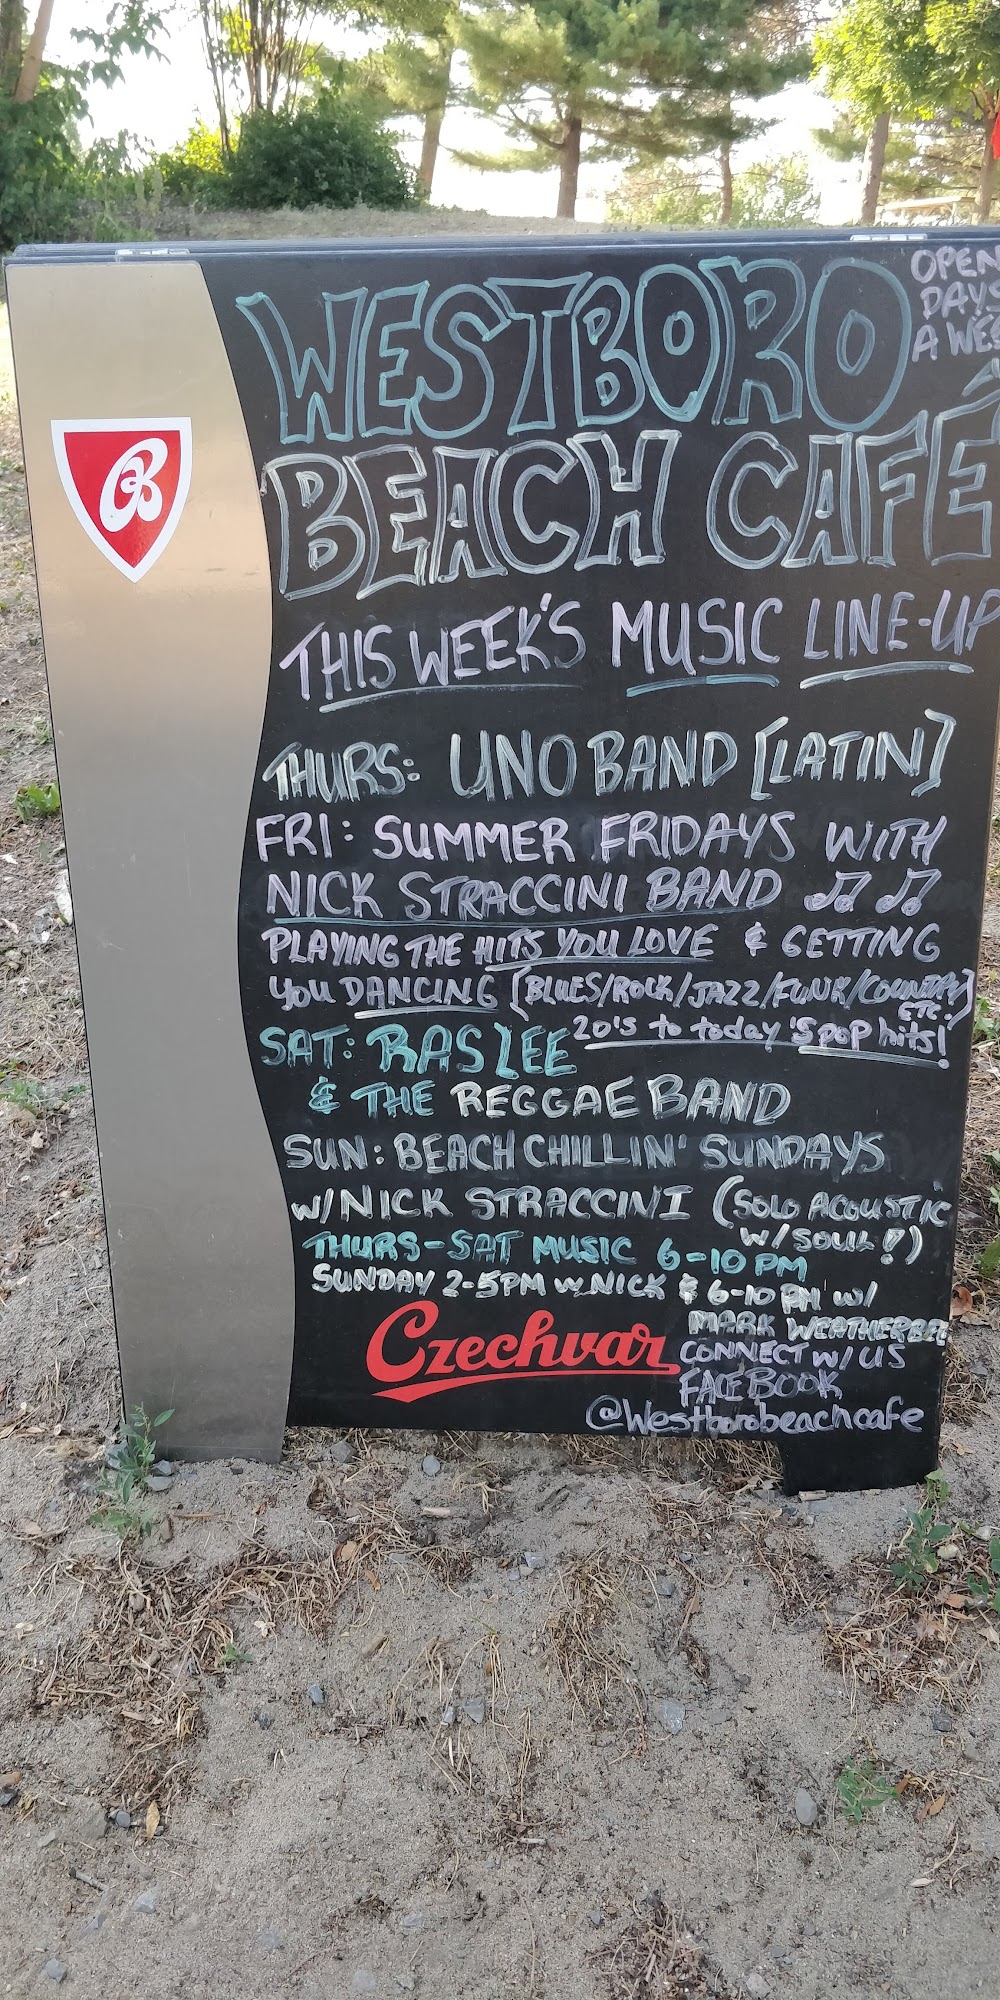 OPEN
DAYS
A WEE
WESTBORO
BEACH CAFÉ
B
THIS WEEK'S MUSIC LINE-UP
THURS: UNO BAND [LATIN]
FRI: SUMMER FRIDAYS WITH
NICK STRACCINI BAND
PLAYING THE HITS YOU LOVE & GETTING
YOU DANCING [BLUES/ROCK/JAZZ/FUNK/COUNTRY
ETC.]
20's to today's pop hits!
SAT: RAS LEE
& THE REGGAE BAND
SUN: BEACH CHILLIN' SUNDAYS
W/NICK STRACCINI (SOLO ACOUSTIC
W/SOUL!)
THURS-SAT MUSIC 6-10 PM
SUNDAY 2-5PM W NICK & 6-10 PM W/
MARK WEATHERBEE
CONNECT W/US
FACEBOOK
@Westborobeachcafe
Czechvar